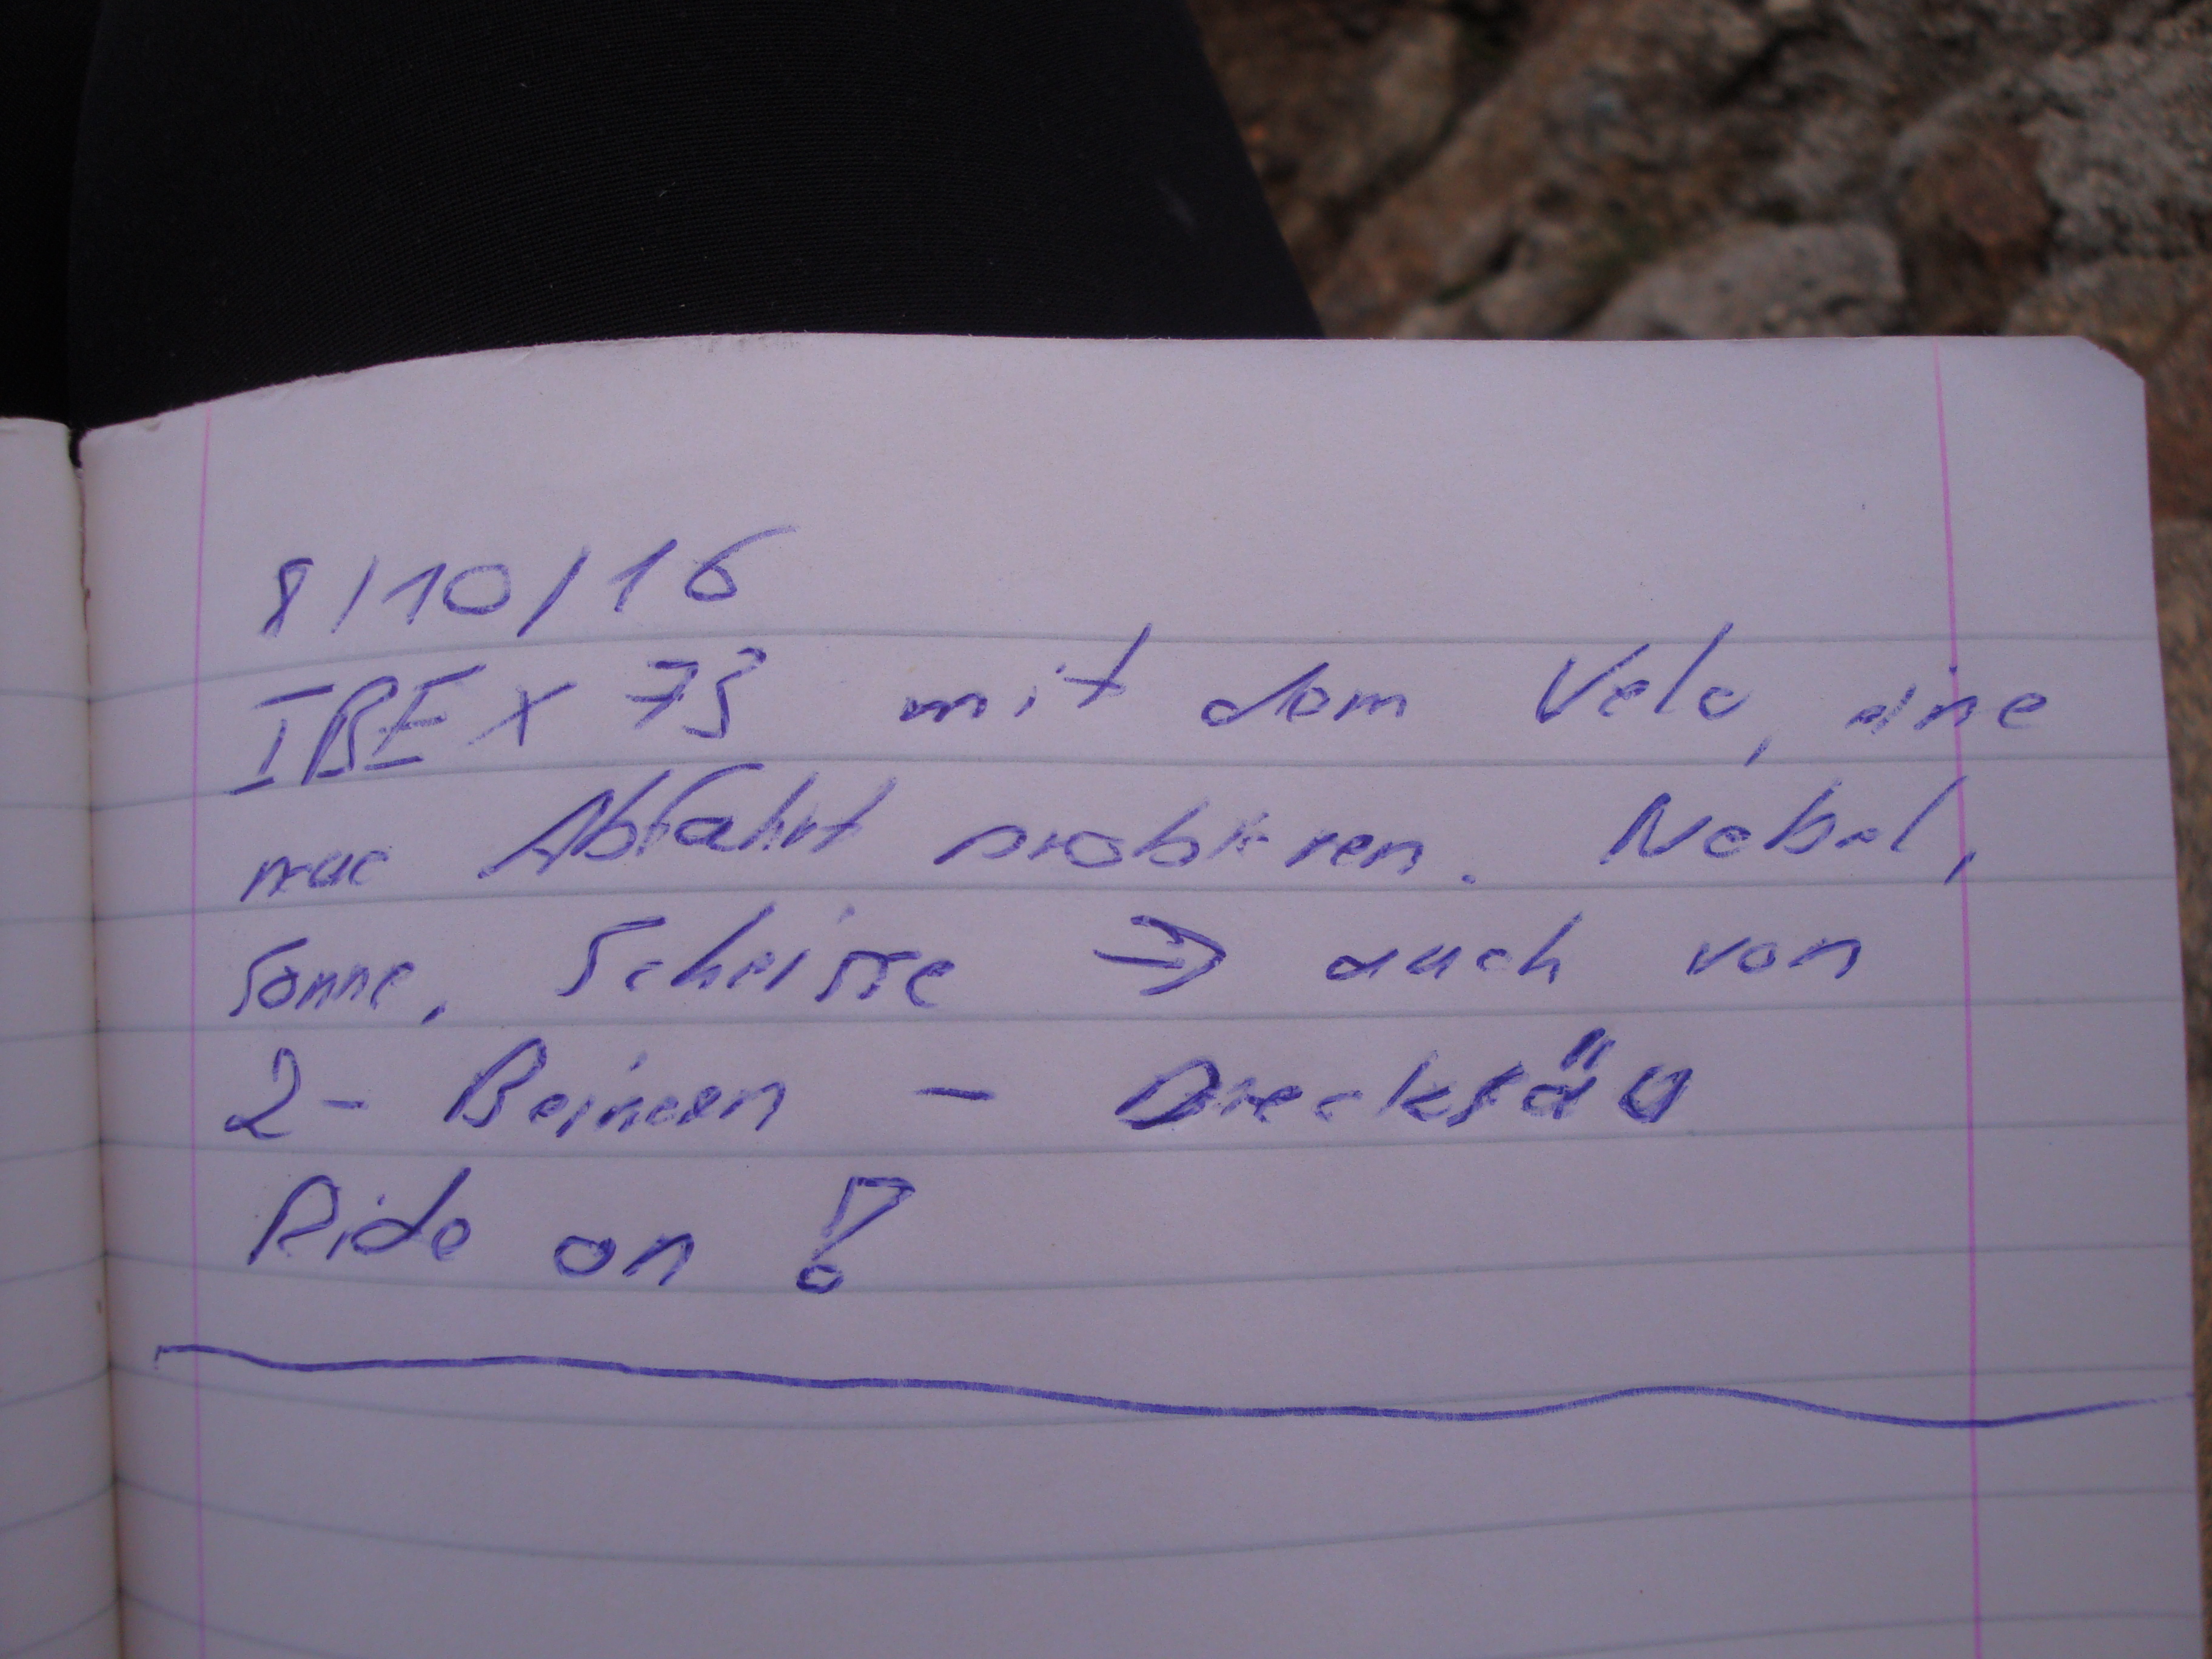 8/10/16
IBEX 73 mit dem Velo, eine
neue Abfahrt probieren. Nebel,
Sonne, Scheisse → auch von
2-Beinern - Drecksäu
Ride on!